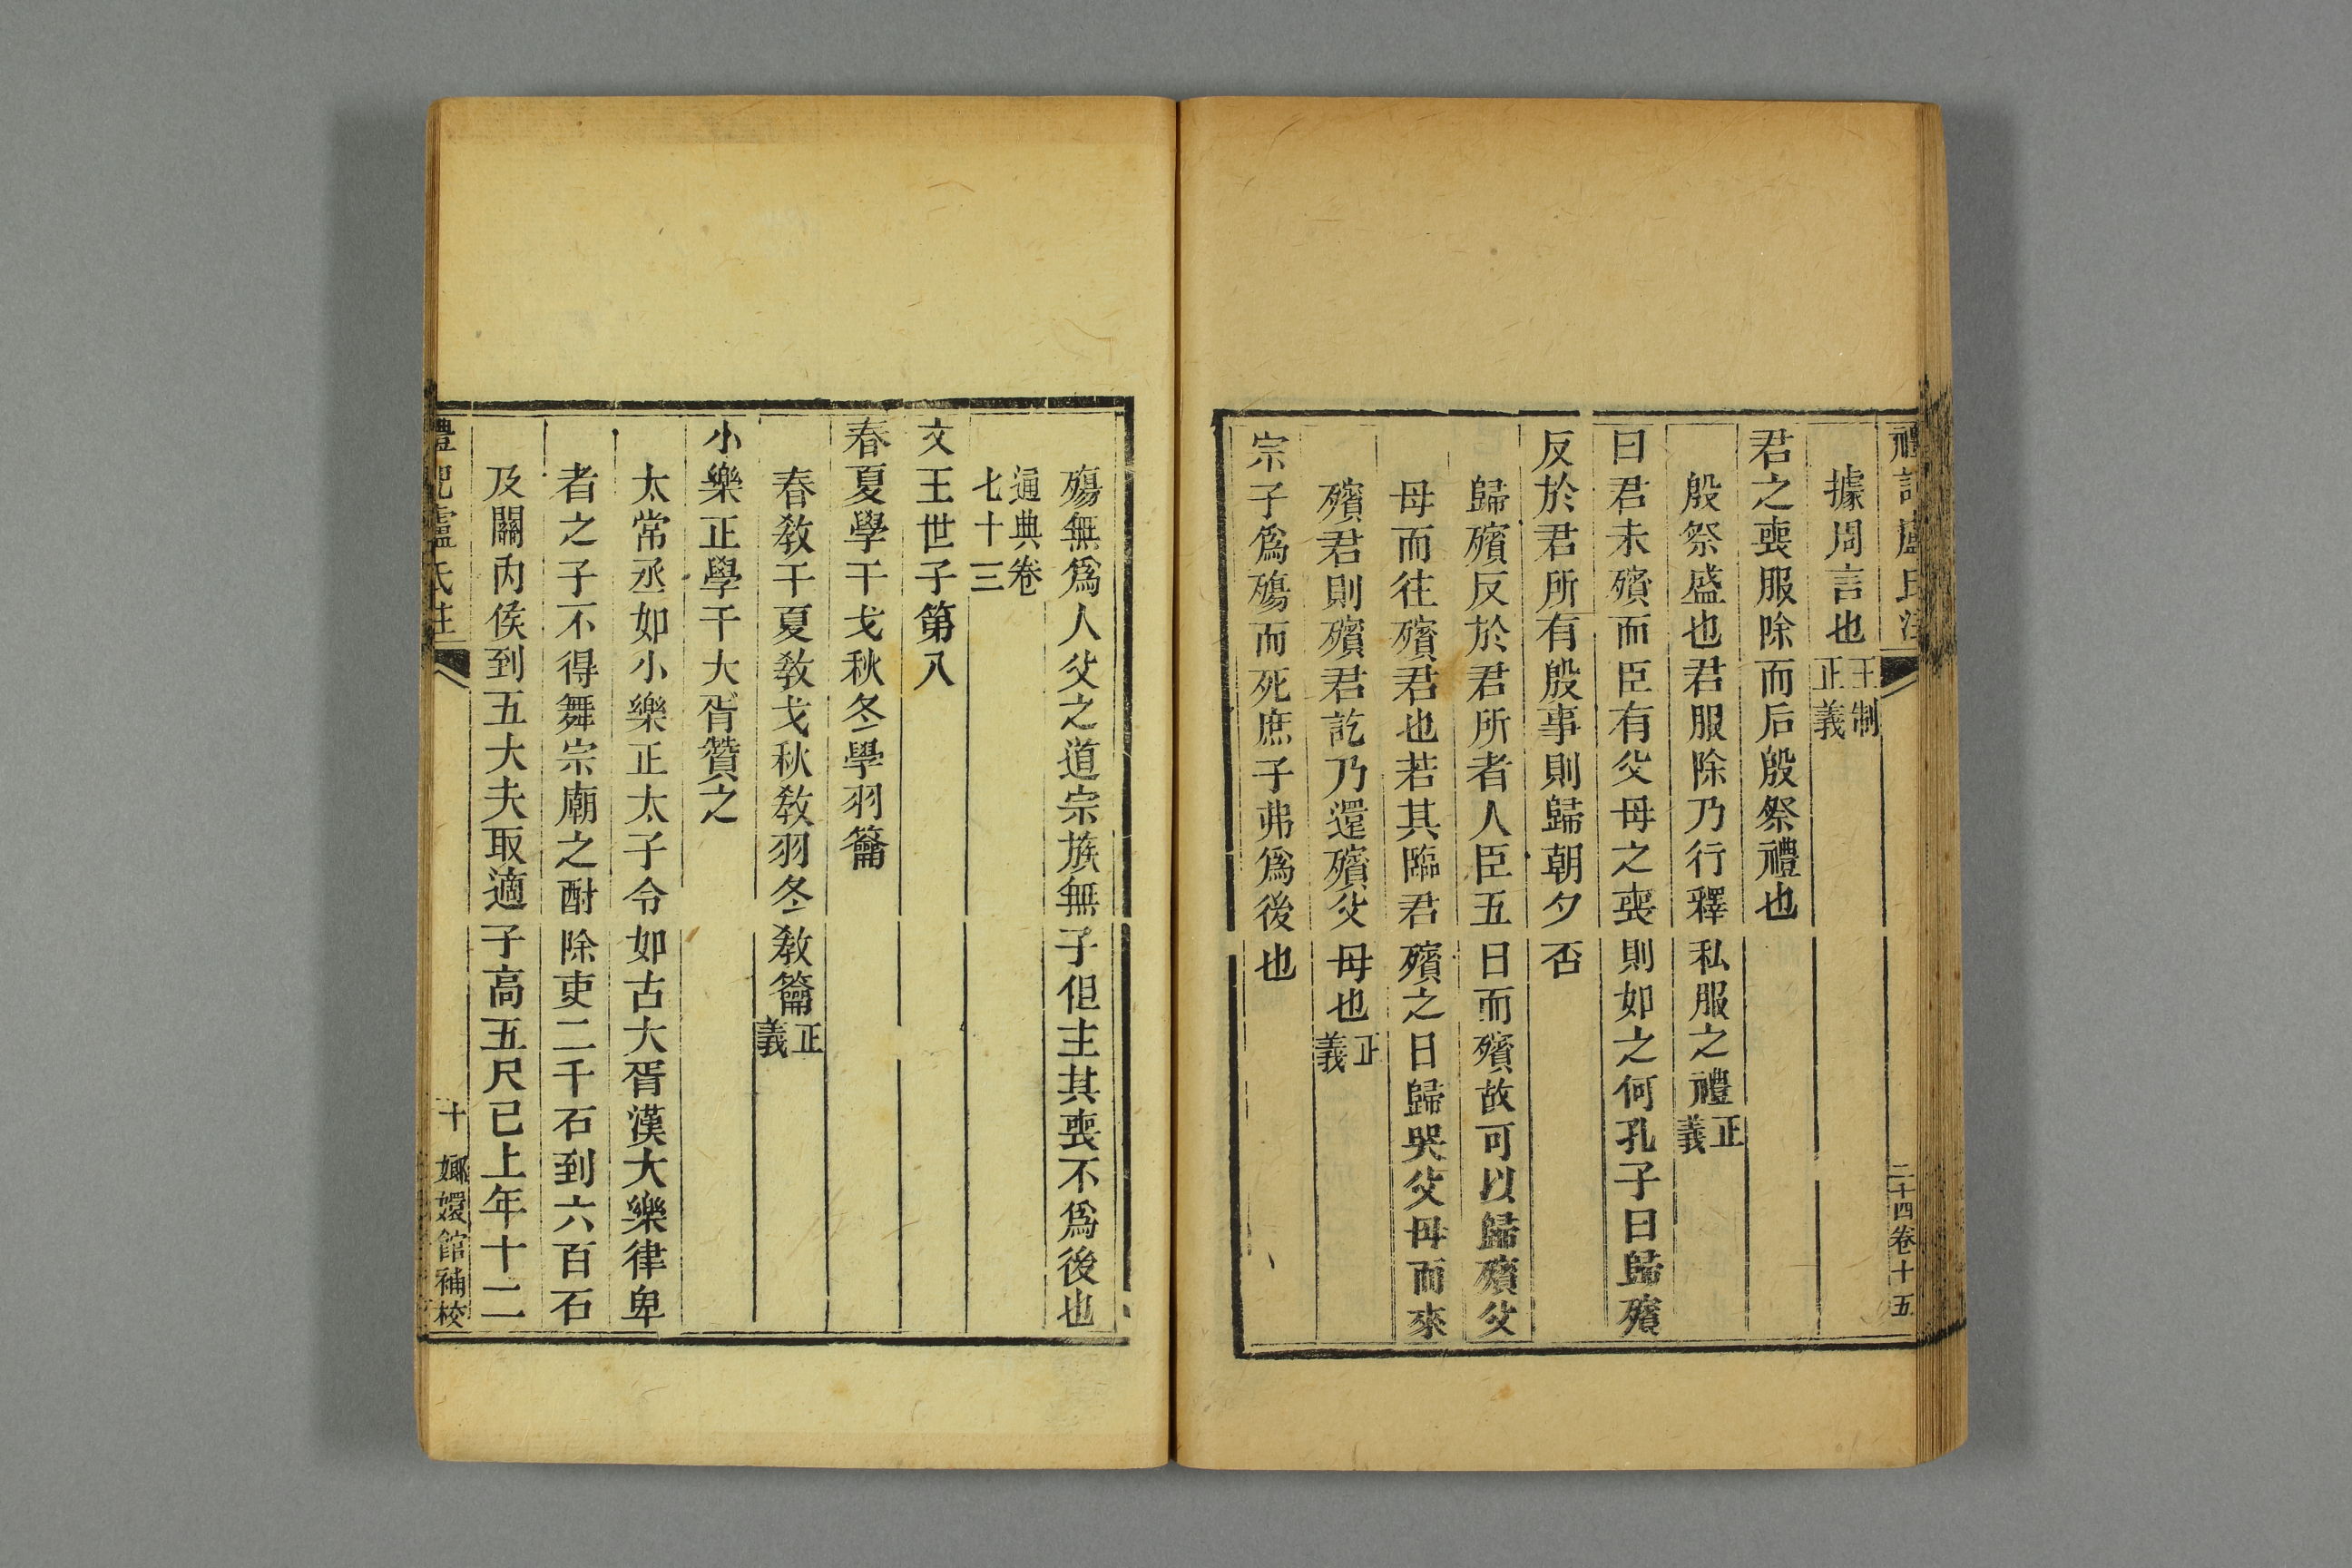 禮記盧氏注 二十四卷十五
據周言也王制正義
君之喪服除而后殷祭禮也
殷祭盛也君服除乃行釋私服之禮正義
曰君未殯而臣有父母之喪則如之何孔子曰歸殯
反於君所有殷事則歸朝夕否
歸殯反於君所者人臣五日而殯故可以歸殯父
母而往殯君也若其臨君殯之日歸哭父母而來
殯君則殯君訖乃還殯父母也正義
宗子爲殤而死庶子弗爲後也
殤無爲人父之道宗族無子但主其喪不爲後也
通典卷七十三
文王世子第八
春夏學干戈秋冬學羽籥
春敎干夏敎戈秋敎羽冬敎籥正義
小樂正學干大胥贊之
太常丞如小樂正太子令如古大胥漢大樂律卑
者之子不得舞宗廟之酎除吏二千石到六百石
及關內侯到五大夫取適子高五尺已上年十二
禮記盧氏注 十 嫏嬛館補校